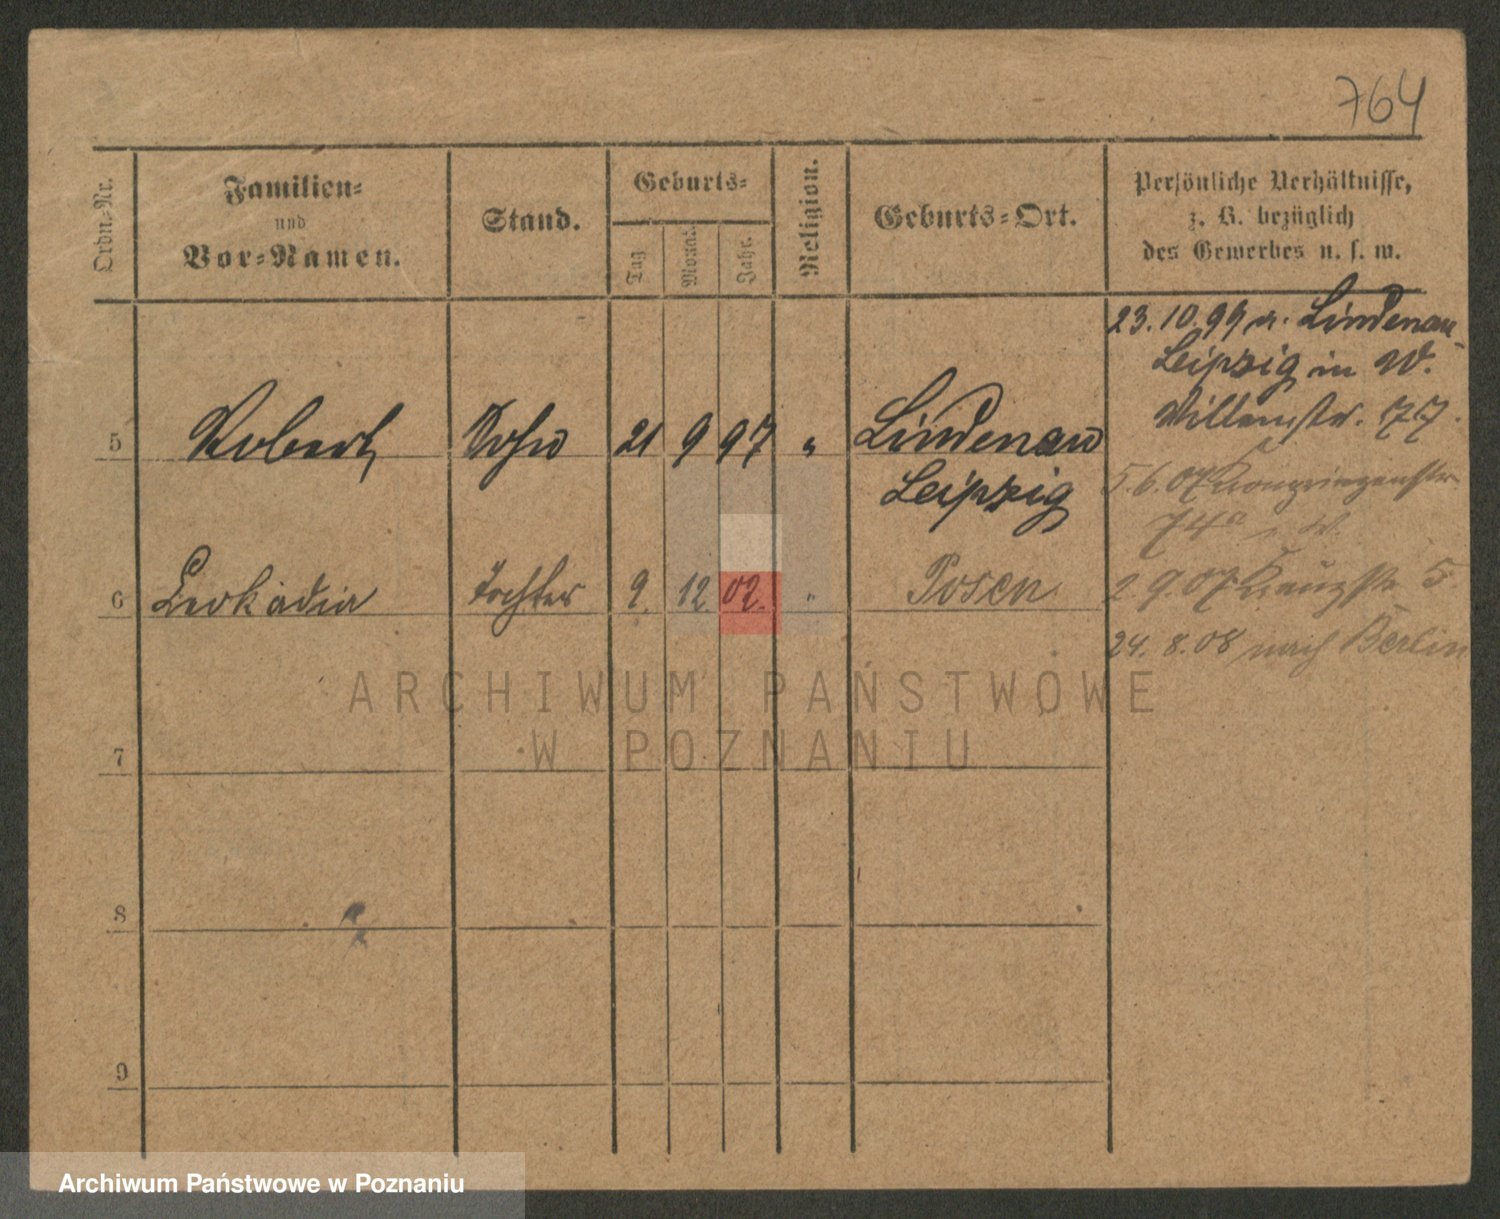 764
Ordn.-Nr.
Familien-
und
Vor-Namen.
Stand.
Geburts-
Tag
Monat
Jahr.
Religion.
Geburts-Ort.
Persönliche Verhältnisse,
z. B. bezüglich
des Gewerbes u. s. w.
23.10.99 v. Lindenau
Leipzig in W.
77.
5 Robert Sohn 21 9 97 " Lindenau
Leipzig
5.6.07 Kronprinzenstr
74a W.
6 Leokadia Tochter 9. 12 02. " Posen
2 9.07 Kreuzstr 5
24. 8.08 nach Berlin
7
8
9
ARCHIWUM PAŃSTWOWE
W POZNANIU
Archiwum Państwowe w Poznaniu